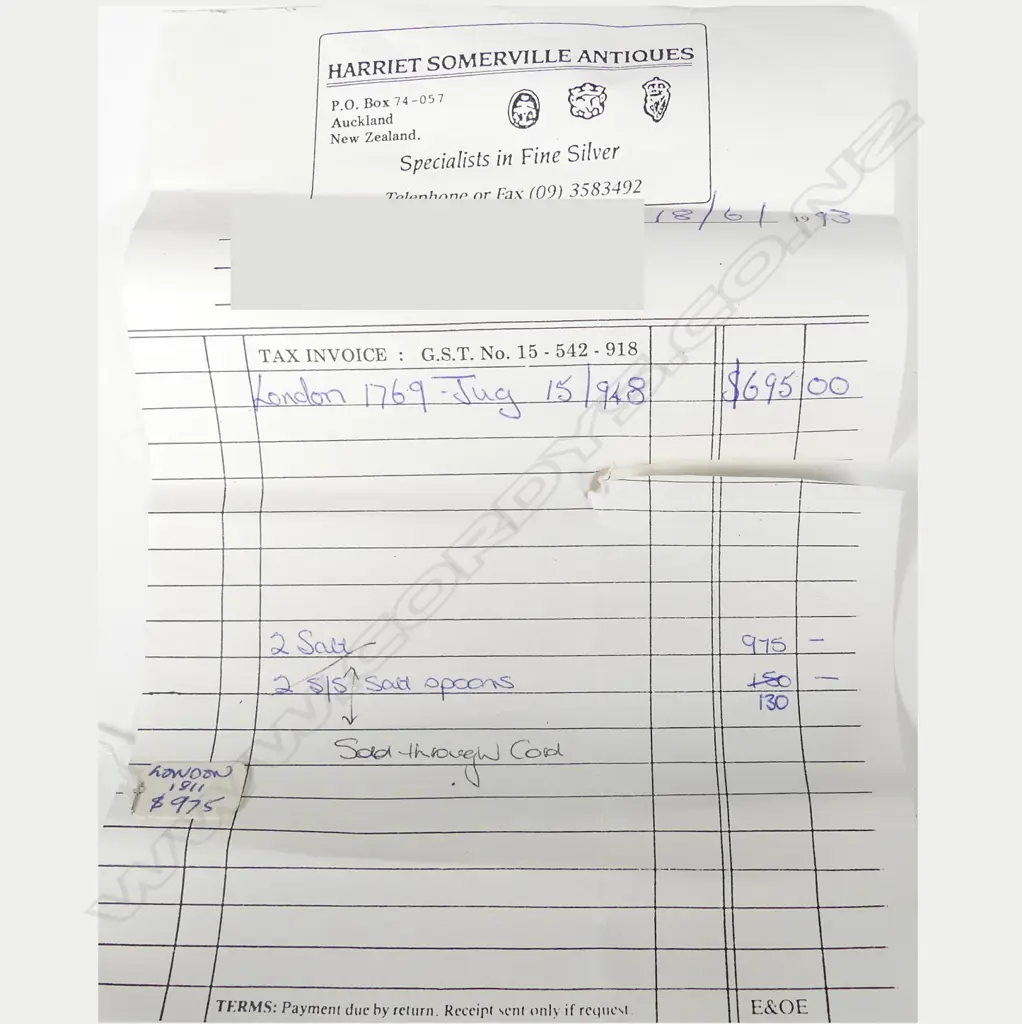 HARRIET SOMERVILLE ANTIQUES
P.O. Box 74-057
Auckland
New Zealand.
Specialists in Fine Silver
Telephone or Fax (09) 3583492
18/6/ 1993
TAX INVOICE : G.S.T. No. 15 - 542 - 918
London 1769 - Jug 15/948 $695 00
2 Salt 975 -
2 S/S Salt spoons 150 -
130
Sold through Cord
LONDON
1811
$975
TERMS: Payment due by return. Receipt sent only if request. E&OE
WWW.CORDYS.CO.NZ